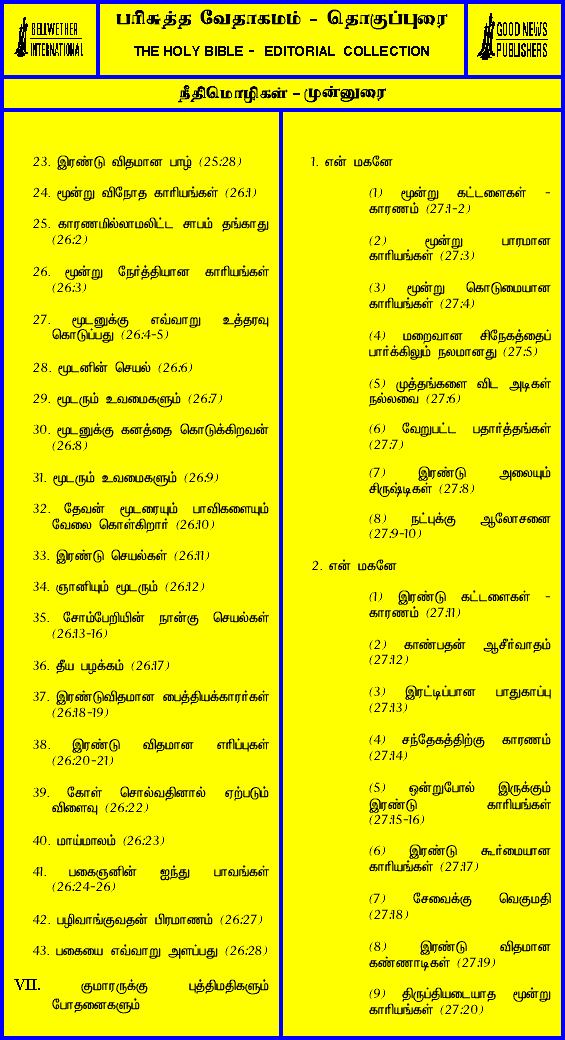 BELLWETHER
INTERNATIONAL
பரிசுத்த வேதாகமம் - தொகுப்புரை
THE HOLY BIBLE - EDITORIAL COLLECTION
GOOD NEWS
PUBLISHERS
நீதிமொழிகள் - முன்னுரை
23. இரண்டு விதமான பாழ் (25:28)
24. மூன்று விநோத காரியங்கள் (26:1)
25. காரணமில்லாமலிட்ட சாபம் தங்காது
(26:2)
26. மூன்று நேர்த்தியான காரியங்கள்
(26:3)
27. மூடனுக்கு எவ்வாறு உத்தரவு
கொடுப்பது (26:4-5)
28. மூடனின் செயல் (26:6)
29. மூடரும் உவமைகளும் (26:7)
30. மூடனுக்கு கனத்தை கொடுக்கிறவன்
(26:8)
31. மூடரும் உவமைகளும் (26:9)
32. தேவன் மூடரையும் பாவிகளையும்
வேலை கொள்கிறார் (26:10)
33. இரண்டு செயல்கள் (26:11)
34. ஞானியும் மூடரும் (26:12)
35. சோம்பேறியின் நான்கு செயல்கள்
(26:13-16)
36. தீய பழக்கம் (26:17)
37. இரண்டுவிதமான பைத்தியக்காரர்கள்
(26:18-19)
38. இரண்டு விதமான எரிப்புகள்
(26:20-21)
39. கோள் சொல்வதினால் ஏற்படும்
விளைவு (26:22)
40. மாய்மாலம் (26:23)
41. பகைஞனின் ஐந்து பாவங்கள்
(26:24-26)
42. பழிவாங்குவதன் பிரமாணம் (26:27)
43. பகையை எவ்வாறு அளப்பது (26:28)
VII. குமாரருக்கு புத்திமதிகளும்
போதனைகளும்
1. என் மகனே
(1) மூன்று கட்டளைகள் -
காரணம் (27:1-2)
(2) மூன்று பாரமான
காரியங்கள் (27:3)
(3) மூன்று கொடுமையான
காரியங்கள் (27:4)
(4) மறைவான சிநேகத்தைப்
பார்க்கிலும் நலமானது (27:5)
(5) முத்தங்களை விட அடிகள்
நல்லவை (27:6)
(6) வேறுபட்ட பதார்த்தங்கள்
(27:7)
(7) இரண்டு அலையும்
சிருஷ்டிகள் (27:8)
(8) நட்புக்கு ஆலோசனை
(27:9-10)
2. என் மகனே
(1) இரண்டு கட்டளைகள் -
காரணம் (27:11)
(2) காண்பதன் ஆசீர்வாதம்
(27:12)
(3) இரட்டிப்பான பாதுகாப்பு
(27:13)
(4) சந்தேகத்திற்கு காரணம்
(27:14)
(5) ஒன்றுபோல் இருக்கும்
இரண்டு காரியங்கள்
(27:15-16)
(6) இரண்டு கூர்மையான
காரியங்கள் (27:17)
(7) சேவைக்கு வெகுமதி
(27:18)
(8) இரண்டு விதமான
கண்ணாடிகள் (27:19)
(9) திருப்தியடையாத மூன்று
காரியங்கள் (27:20)